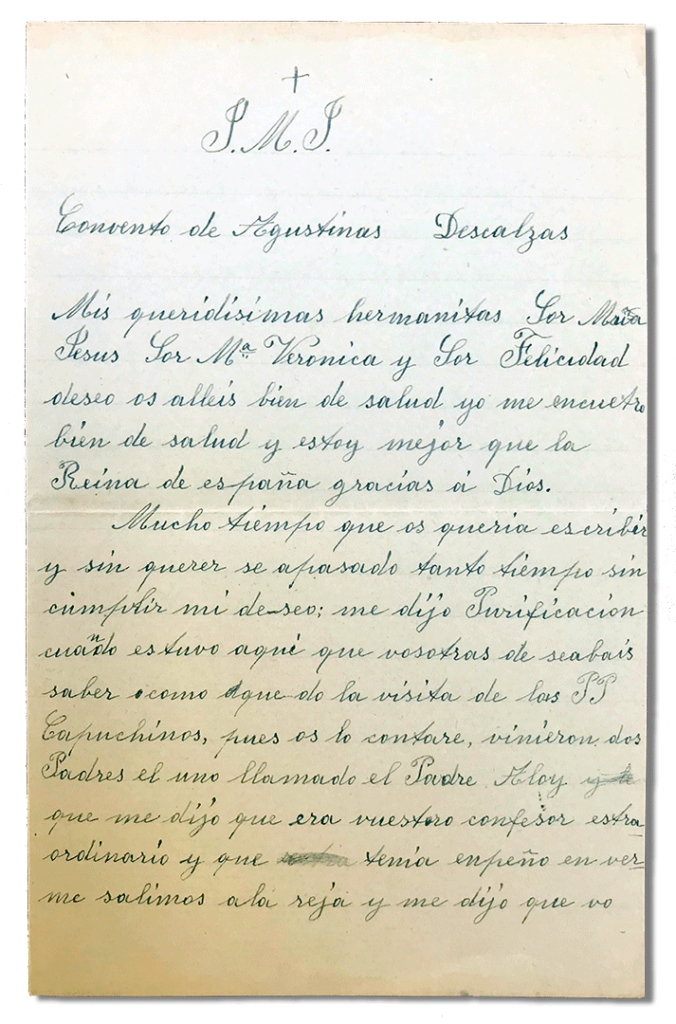 +
J. M. J.
Convento de Agustinas Descalzas
Mis queridisimas hermanitas Sor Maria
Jesus Sor Mª Veronica y Sor Felicidad
deseo os alleis bien de salud yo me encuetro
bien de salud y estoy mejor que la
Reina de españa gracias á Dios.
Mucho tiempo que os queria escribir
y sin querer se apasado tanto tiempo sin
cumplir mi deseo; me dijo Purificacion
cuando estuvo aqui que vosotras de seabais
saber como que do la visita de los PP
Capuchinos, pues os lo contare, vinieron dos
Padres el uno llamado el Padre Aloy
que me dijo que era vuestro confesor estra
ordinario y que tenia enpeño en ver-
me salimos ala reja y me dijo que vo